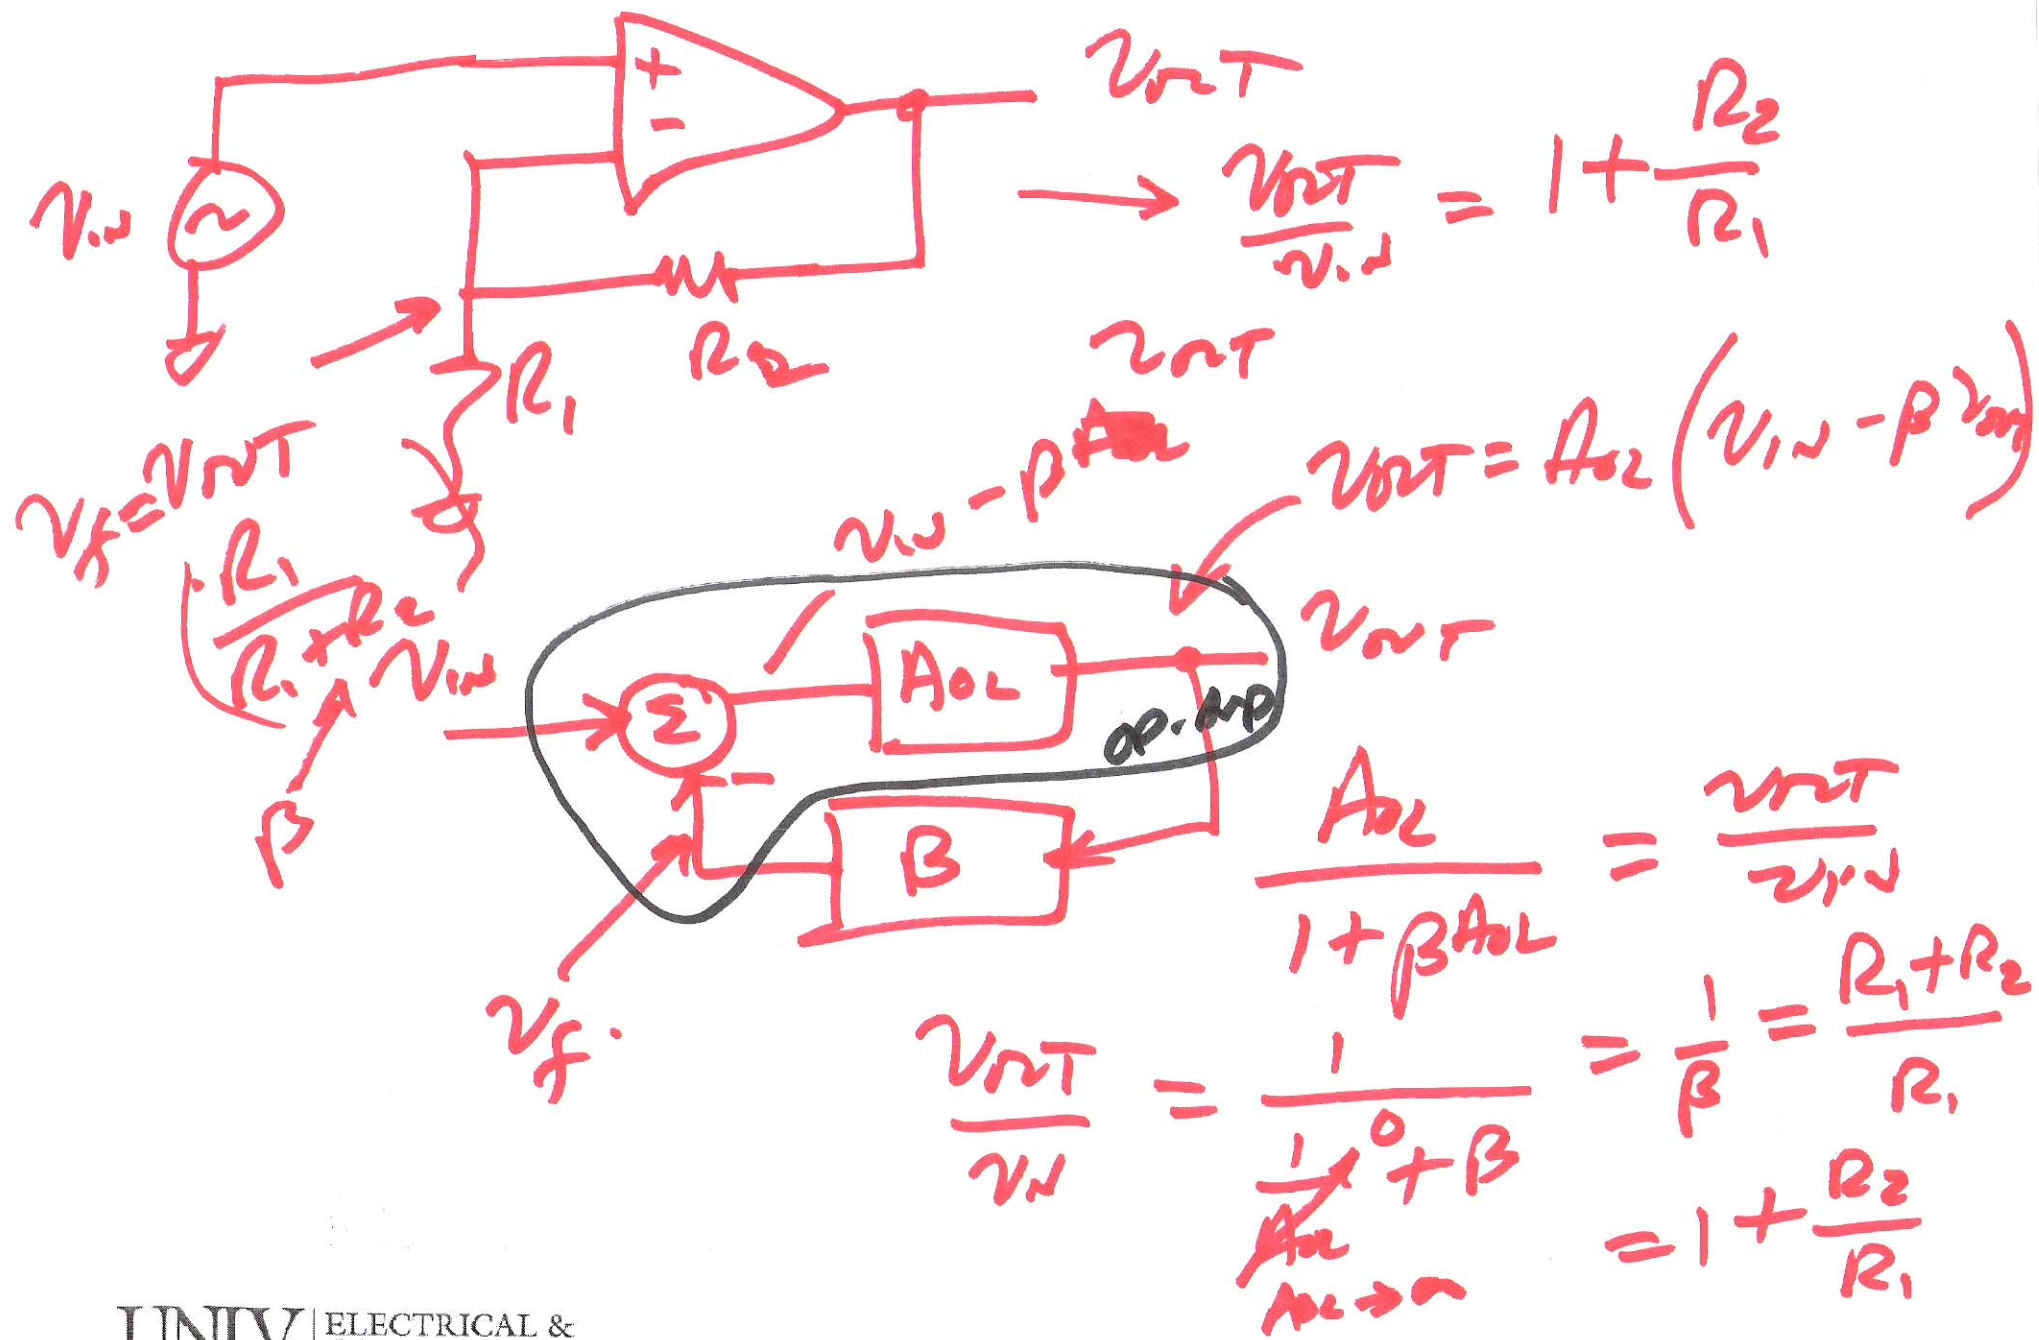 +
−
VOUT
VOUT/VIN = 1 + R2/R1
VIN
R2
R1
VOUT
Vf = VOUT
(· R1/(R1 + R2)
β
VIN − β
VOUT = AOL (VIN − β VOUT)
VIN
Σ
−
AOL
VOUT
op-Amp
B
Vf.
AOL/(1 + β AOL) = VOUT/VIN
VOUT/VIN = 1/(1/AOL 0 + β) = 1/β = (R1 + R2)/R1
AOL → ∞
= 1 + R2/R1
UNLV | ELECTRICAL &